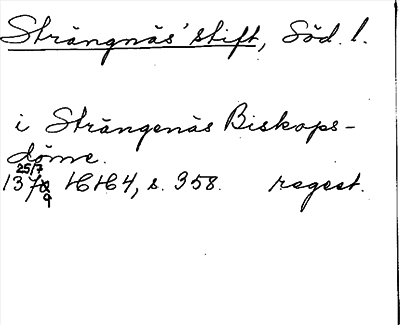 Strängnäs' stift, Söd. l.
i Strängenäs Biskops-
döme.
25/7
1379 HH4, s. 358. regest.